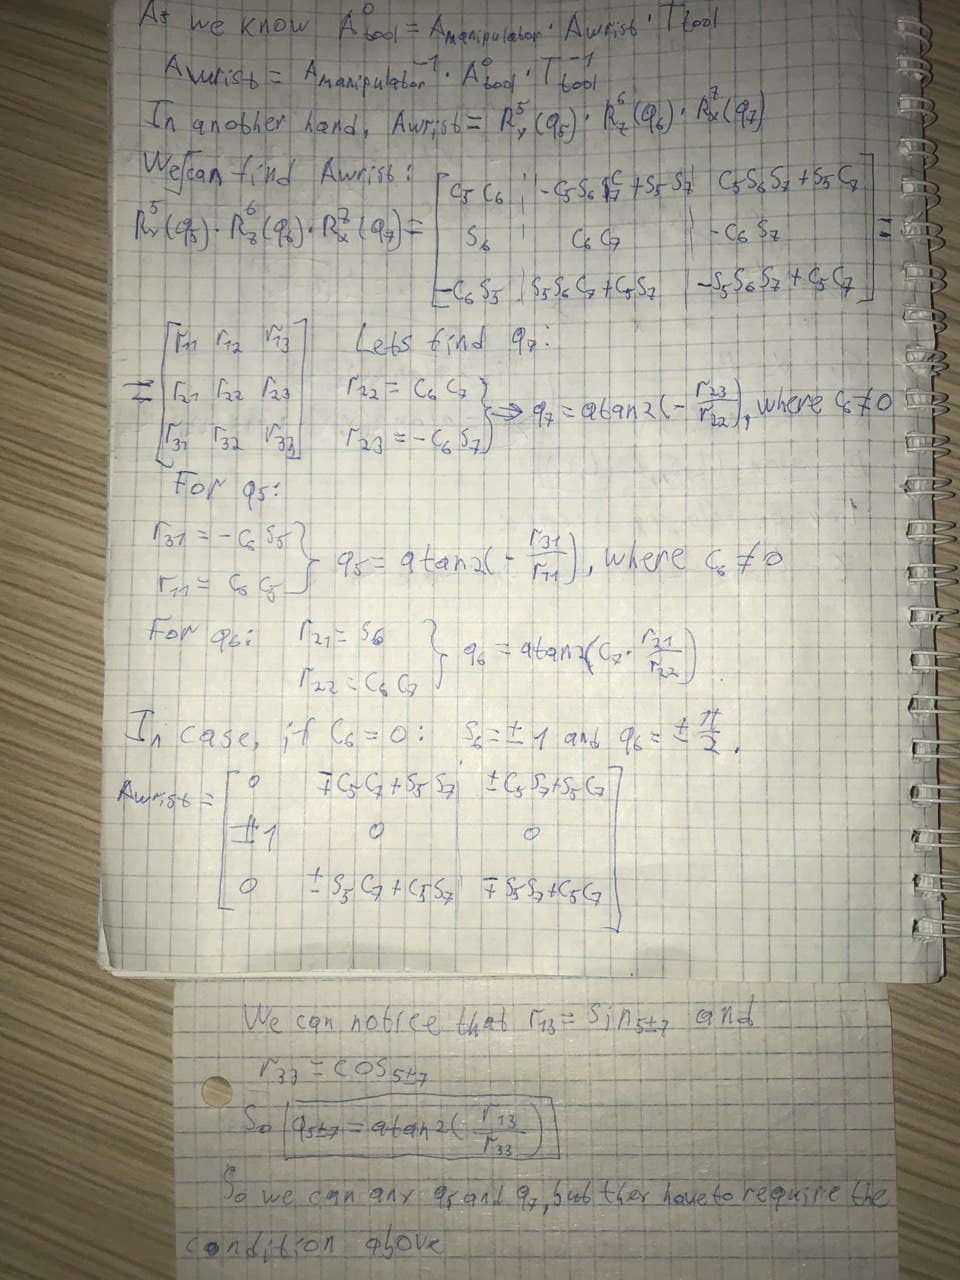 As we know A⁰tool = Amanipulator · Awrist · Ttool
Awrist = Amanipulator⁻¹ · A⁰tool · Ttool⁻¹
In another hand, Awrist = R⁵ᵧ(q₅) · R⁶z(q₆) · R⁷ₓ(q₇)
We can find Awrist:
R⁵ᵧ(q₅) · R⁶z(q₆) · R⁷ₓ(q₇) = [ C₅C₆ | -C₅S₆C₇+S₅S₇ | C₅S₆S₇+S₅C₇
S₆ | C₆C₇ | -C₆S₇
-C₆S₅ | S₅S₆C₇+C₅S₇ | -S₅S₆S₇+C₅C₇ ] =
= [ r₁₁ r₁₂ r₁₃
r₂₁ r₂₂ r₂₃
r₃₁ r₃₂ r₃₃ ]
Lets find q₇:
r₂₂ = C₆C₇
r₂₃ = -C₆S₇ } ⇒ q₇ = atan2(- r₂₃/r₂₂), where C₆≠0
For q₅:
r₃₁ = -C₆S₅
r₁₁ = C₆C₅ } q₅ = atan2(- r₃₁/r₁₁), where C₆≠0
For q₆: r₂₁ = S₆
r₂₂ = C₆C₇ } q₆ = atan2(C₇ · r₂₁/r₂₂)
In case, if C₆ = 0: S₆ = ±1 and q₆ = ± π/2.
Awrist = [ 0 ∓C₅C₇+S₅S₇ ±C₅S₇+S₅C₇
±1 0 0
0 ±S₅C₇+C₅S₇ ∓S₅S₇+C₅C₇ ]
We can notice that r₁₃ = sin₅±₇ and
r₃₃ = cos₅±₇
So q₅±₇ = atan2( r₁₃/r₃₃ )
So we can any q₅ and q₇, but ther have to require the
condition above